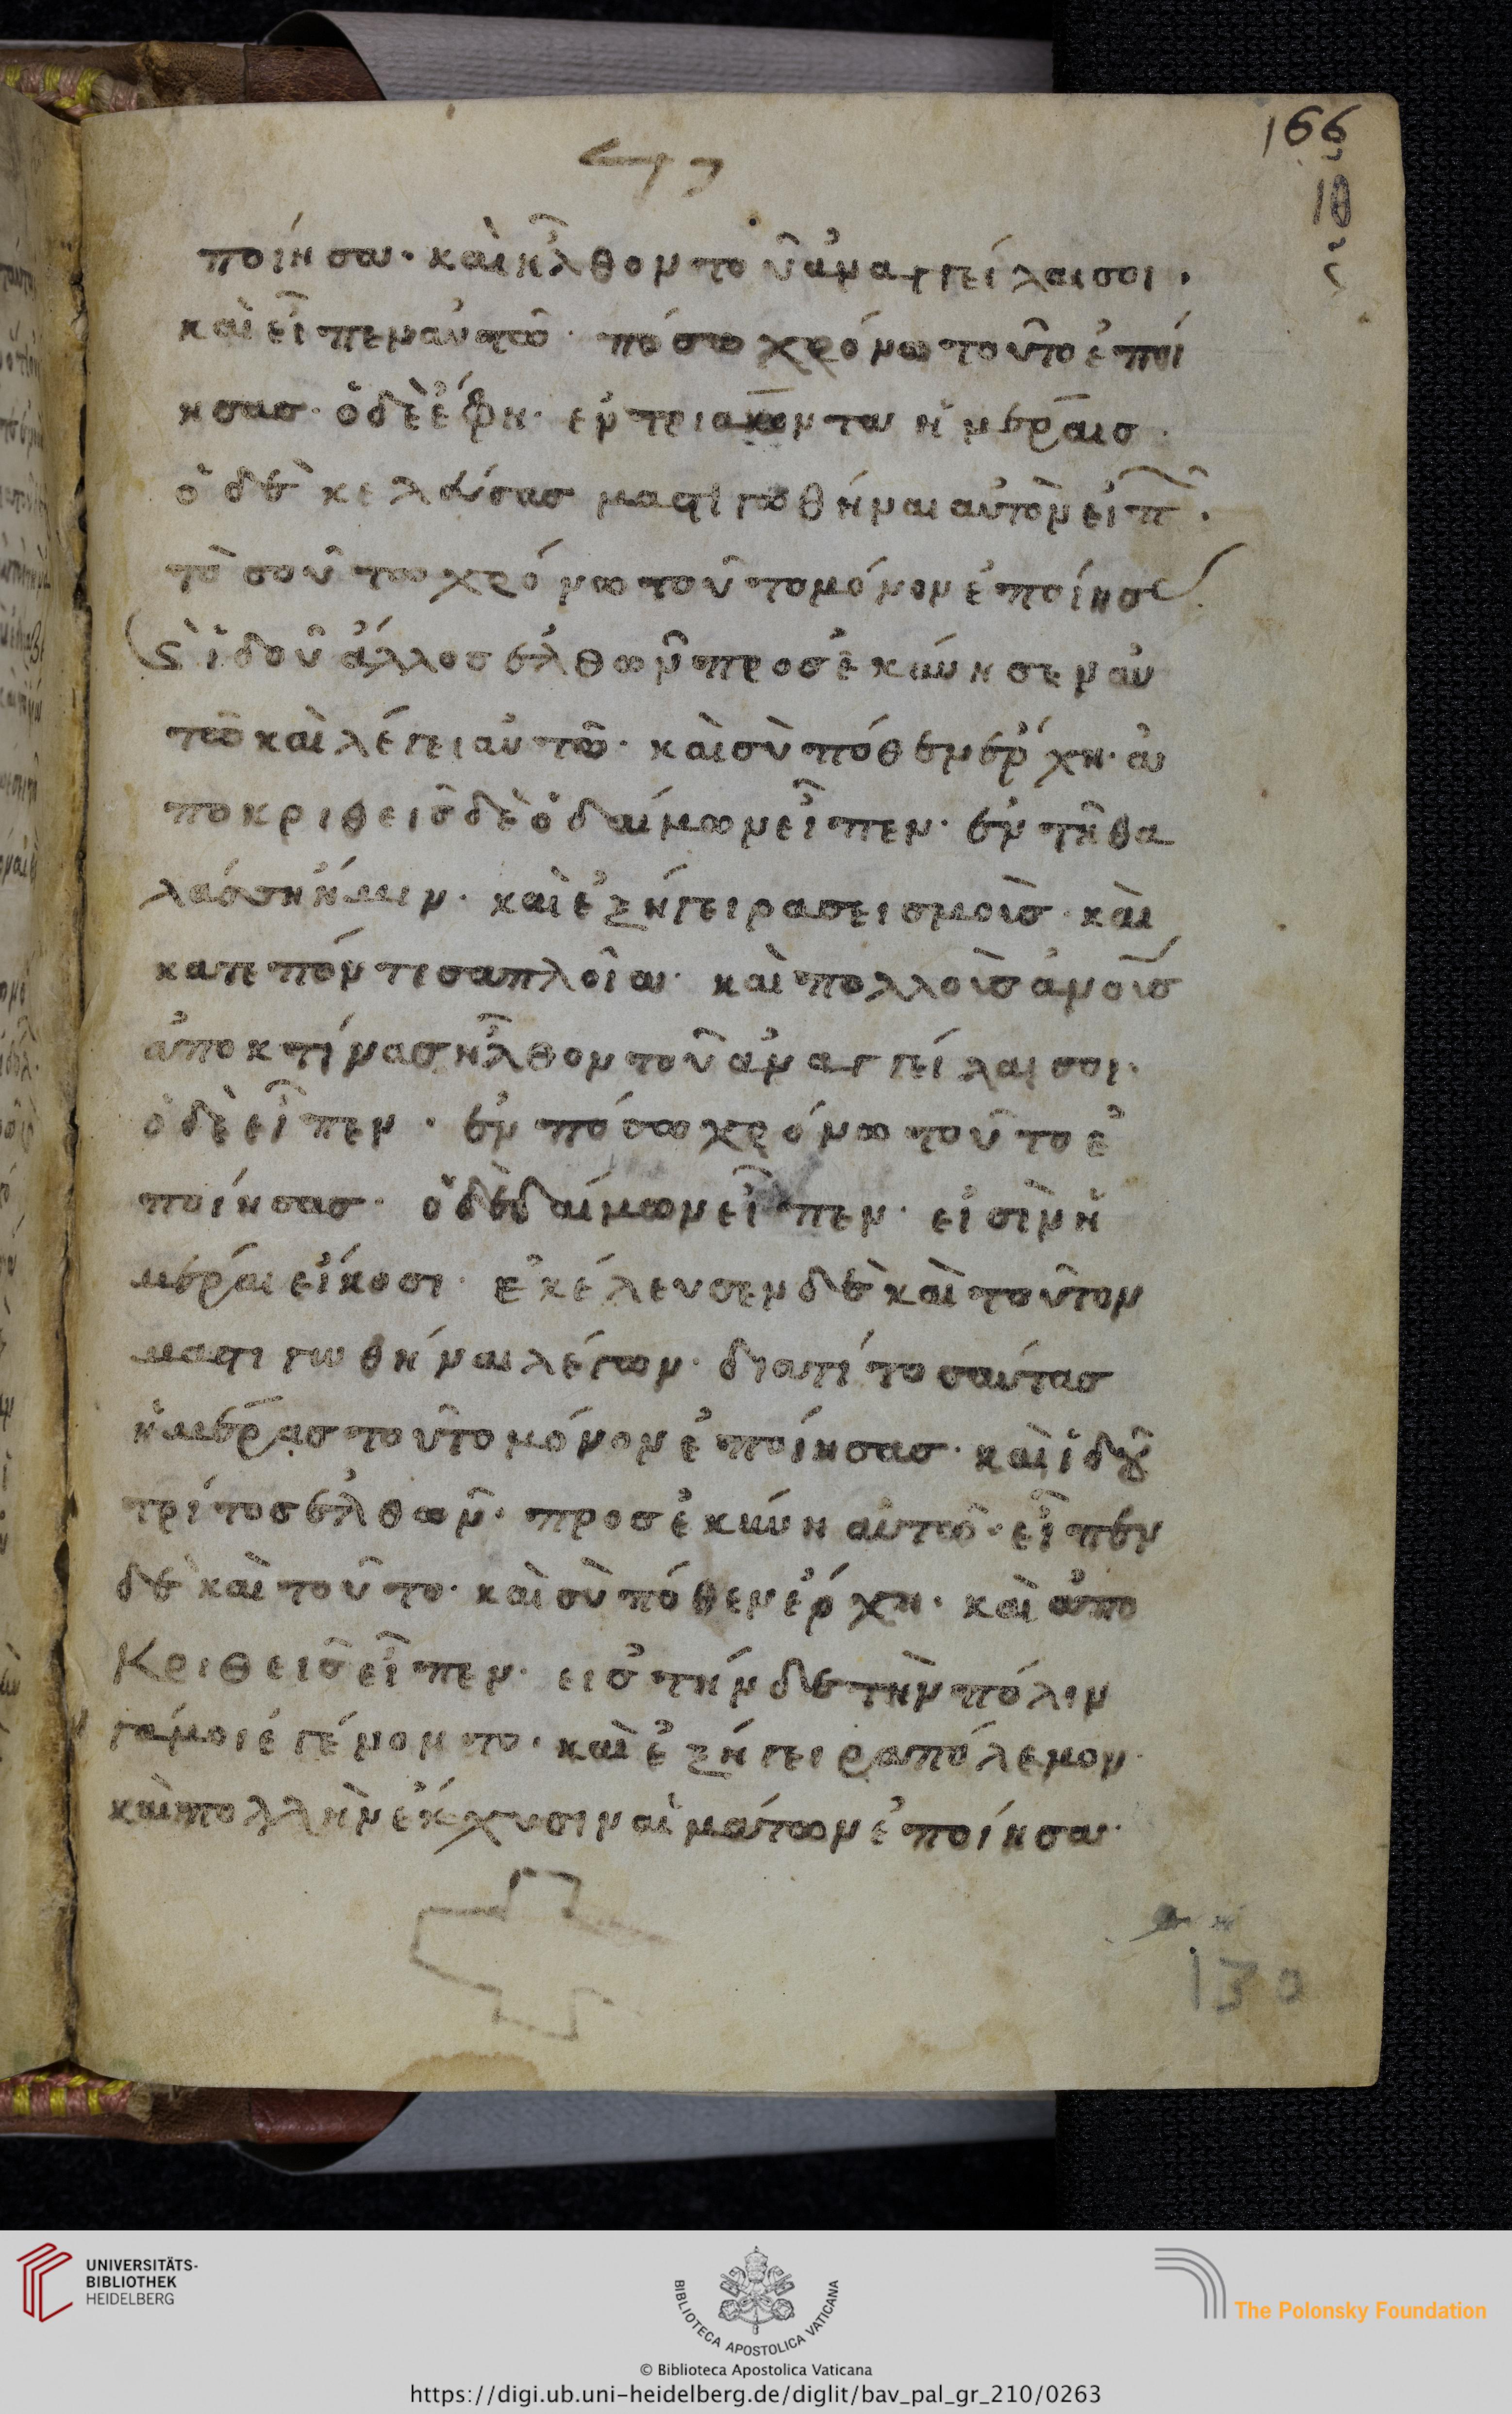 166
ιθ
ποίησα· καὶ ἦλθον τοῦ ἀναγγεῖλαί σοι·
καὶ εἶπεν αὐτῶ· πόσω χρόνω τοῦτο ἐποί
ησας· ὁ δὲ ἔφη· ἐν τριάκοντα ἡμέραις·
ὁ δὲ κελεύσας μαστιγωθῆναι αὐτὸν εἶπ·
τὸσούτω χρόνω τοῦτο μόνον ἐποίησ
ϛ ἰδοῦ ἄλλος ἐλθὼν προσεκύνησεν αὐ
τῶ καὶ λέγει αὐτῶ· καὶ σὺ πόθεν ἔρχη· ἀ
ποκριθεὶς δὲ ὁ δαίμων εἶπεν· ἐν τῆ θα
λάσση ἤμην· καὶ ἐξήγειρα σεισμοὺς· καὶ
κατεπόντισα πλοῖα· καὶ πολλοὺς ἀνοὺς
ἀποκτίνας ἦλθον τοῦ ἀναγγεῖλαί σοι·
ὁ δὲ εἶπεν· ἐν πόσω χρόνω τοῦτο ἐ
ποίησας· ὁ δὲ δαίμων εἶπεν· εἰσὶν ἡ
μέραι εἴκοσι· ἐκέλευσεν δὲ καὶ τοῦτον
μαστιγωθῆναι λέγων· διατί τοσαύτας
ἡμέρας τοῦτο μόνον ἐποίησας· καὶ ἰδοῦ
τρίτος ἐλθὼν· προσεκύνη αὐτῶ· εἶπεν
δὲ καὶ τοῦτο· καὶ σὺ πόθεν ἔρχη· καὶ ἀπο
κριθεὶς εἶπεν· εἰς τήνδε τὴν πόλιν
γάμοι ἐγένοντο· καὶ ἐξήγειρα πόλεμον·
καὶ πολλὴν ἔκχυσιν αἱμάτων ἐποίησα·
130
UNIVERSITÄTS-
BIBLIOTHEK
HEIDELBERG
BIBLIOTECA APOSTOLICA VATICANA
The Polonsky Foundation
© Biblioteca Apostolica Vaticana
https://digi.ub.uni-heidelberg.de/diglit/bav_pal_gr_210/0263